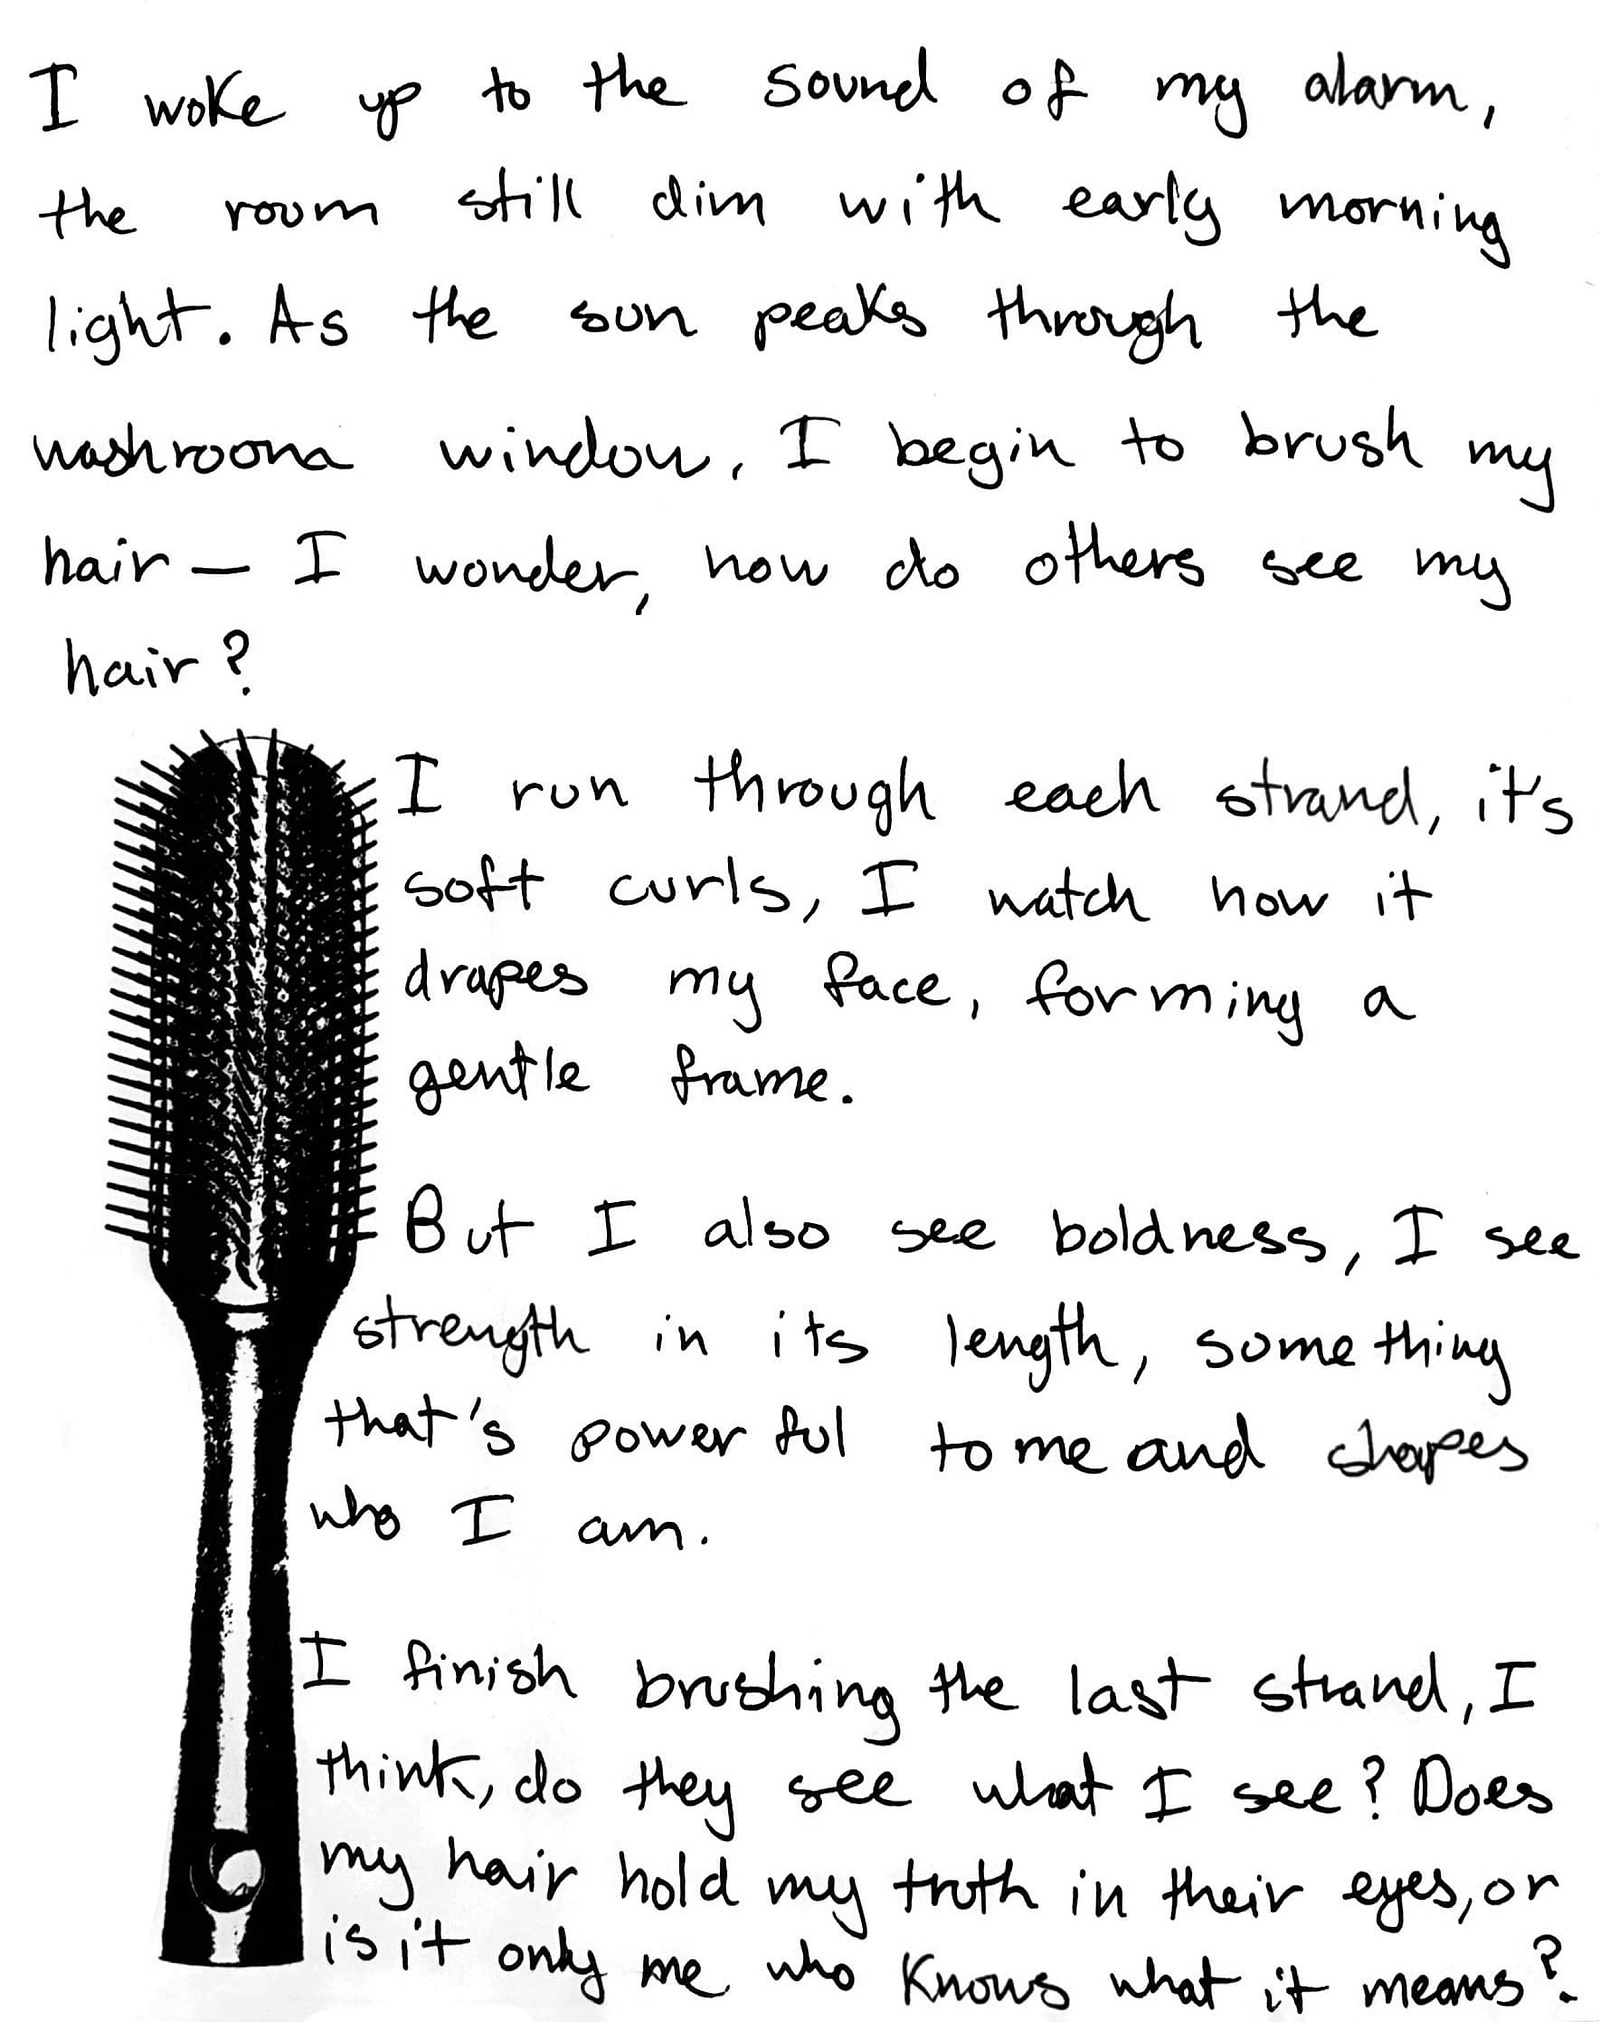 I woke up to the sound of my alarm,
the room still dim with early morning
light. As the sun peaks through the
washroom window, I begin to brush my
hair — I wonder, how do others see my
hair?
I run through each strand, it's
soft curls, I watch how it
drapes my face, forming a
gentle frame.
But I also see boldness, I see
strength in its length, something
that's powerful to me and shapes
who I am.
I finish brushing the last strand, I
think, do they see what I see? Does
my hair hold my truth in their eyes, or
is it only me who knows what it means?